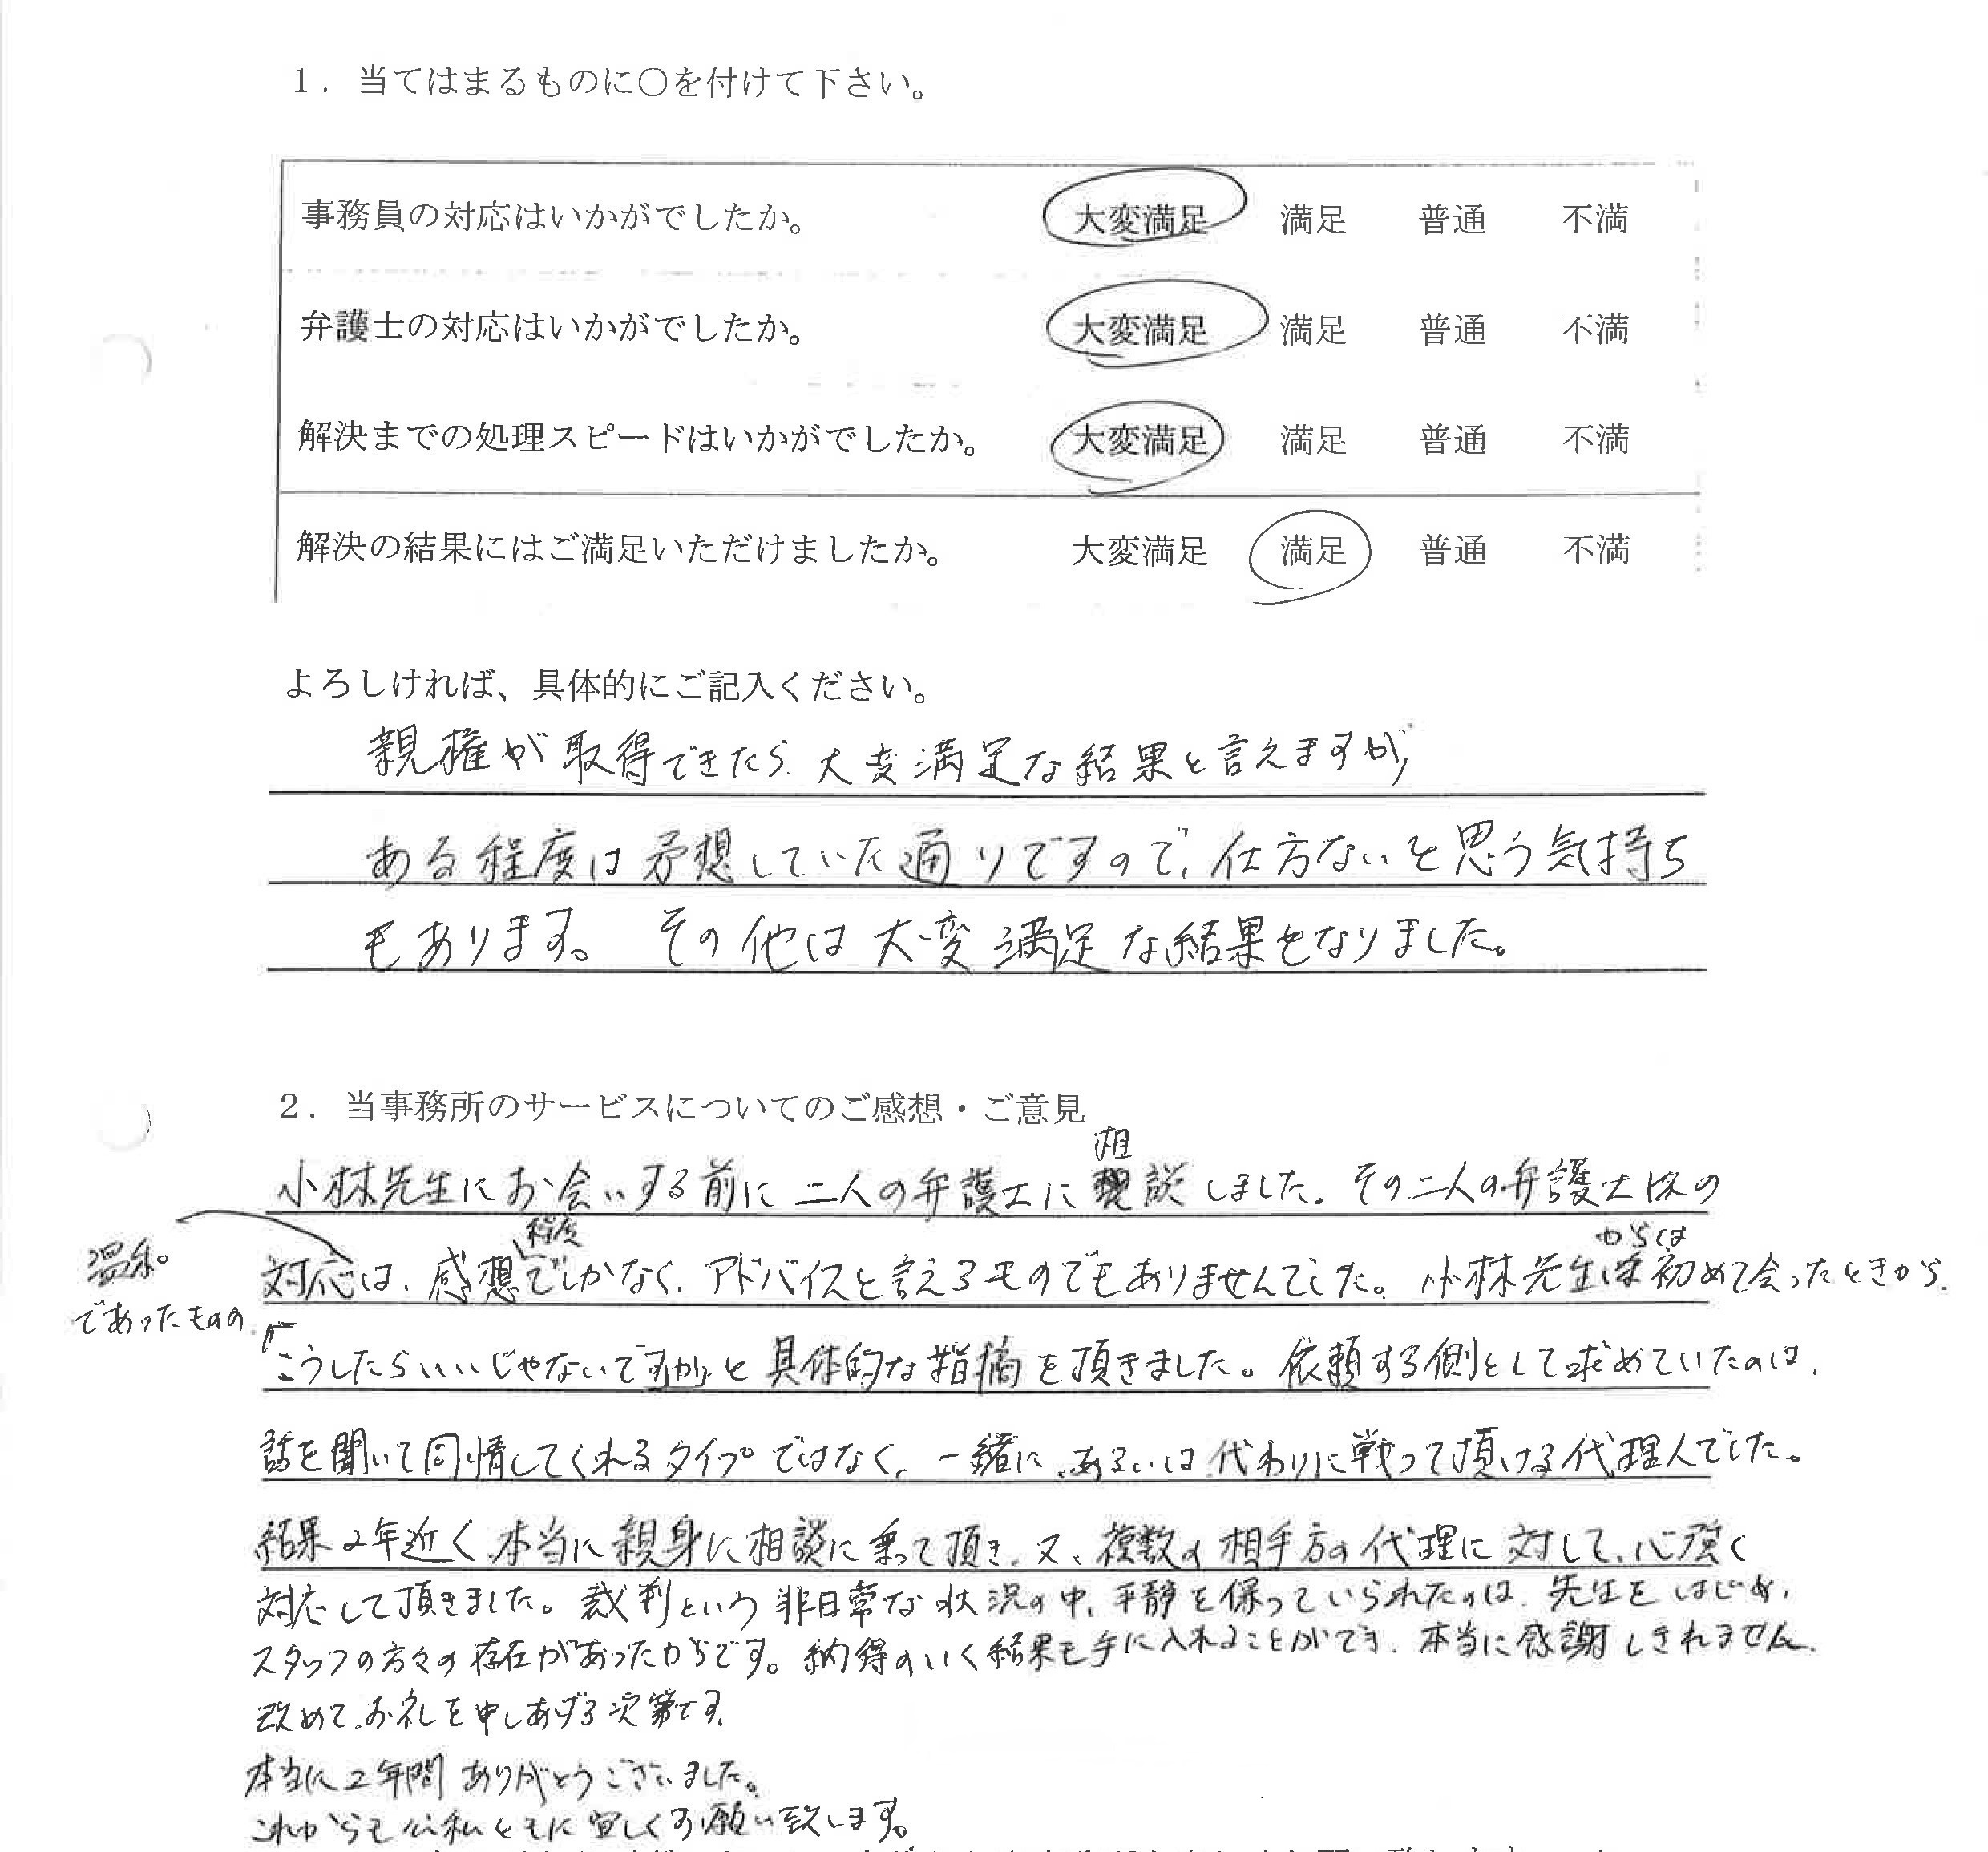 1．当てはまるものに○を付けて下さい。
事務員の対応はいかがでしたか。 大変満足 満足 普通 不満
弁護士の対応はいかがでしたか。 大変満足 満足 普通 不満
解決までの処理スピードはいかがでしたか。 大変満足 満足 普通 不満
解決の結果にはご満足いただけましたか。 大変満足 満足 普通 不満
よろしければ、具体的にご記入ください。
親権が取得できたら、大変満足な結果と言えますが、
ある程度は予想していた通りですので、仕方ないと思う気持ち
もあります。 その他は大変満足な結果となりました。
2．当事務所のサービスについてのご感想・ご意見
相
小林先生にお会いする前に二人の弁護士に談しました。その二人の弁護士は
程度
からは
対応は、感想でしかなく、アドバイスと言えるものでもありませんでした。小林先生は初めて会ったときから、
温和。
であったものの、
こうしたらいいじゃないですか、と具体的な指摘を頂きました。依頼する側として求めていたのは、
話を聞いて同情してくれるタイプではなく、一緒に、あるいは代わりに戦って頂ける代理人でした。
結果2年近く、本当に親身に相談に乗って頂き、又、複数の相手方の代理に対して、心強く
対応して頂きました。裁判という非日常な状況の中、平静を保っていられたのは、先生をはじめ、
スタッフの方々の存在があったからです。納得のいく結果も手に入れることができ、本当に感謝しきれません。
改めて、お礼を申しあげる次第です。
本当に2年間ありがとうございました。
これからも公私ともに宜しくお願い致します。